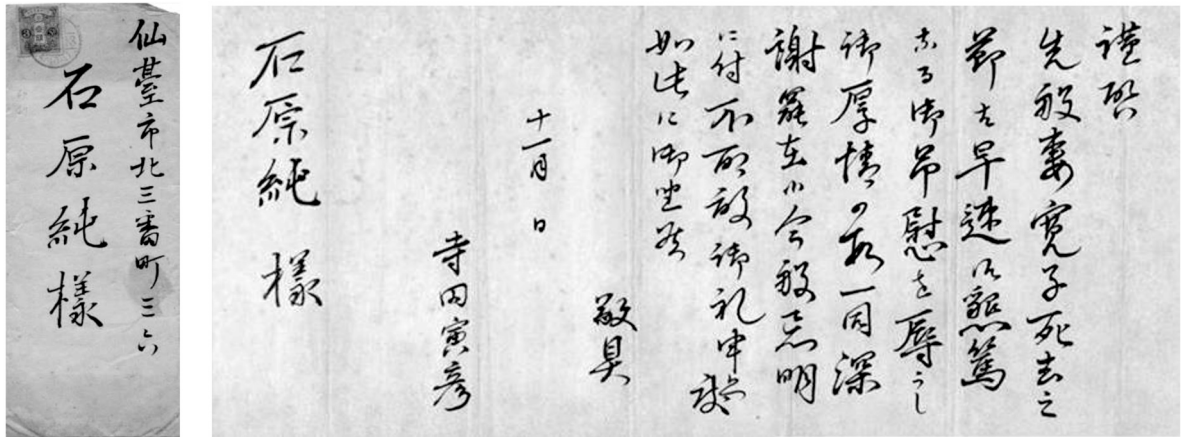 仙臺市北三番町三六
石原純樣
謹啓
先般妻寛子死去之
節は早速御懇篤
なる御弔慰を辱うし
御厚情の段一同深
謝罷在候今般忌明
に付不取敢御礼申上度
如此に御坐候
敬具
十一月 日
寺田寅彦
石原純 樣